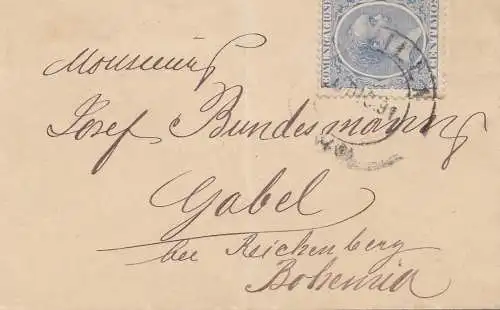 COMUNICACIONES
Monsieur
Josef Bundesmann
Gabel
bei Reichenberg
Bohemia